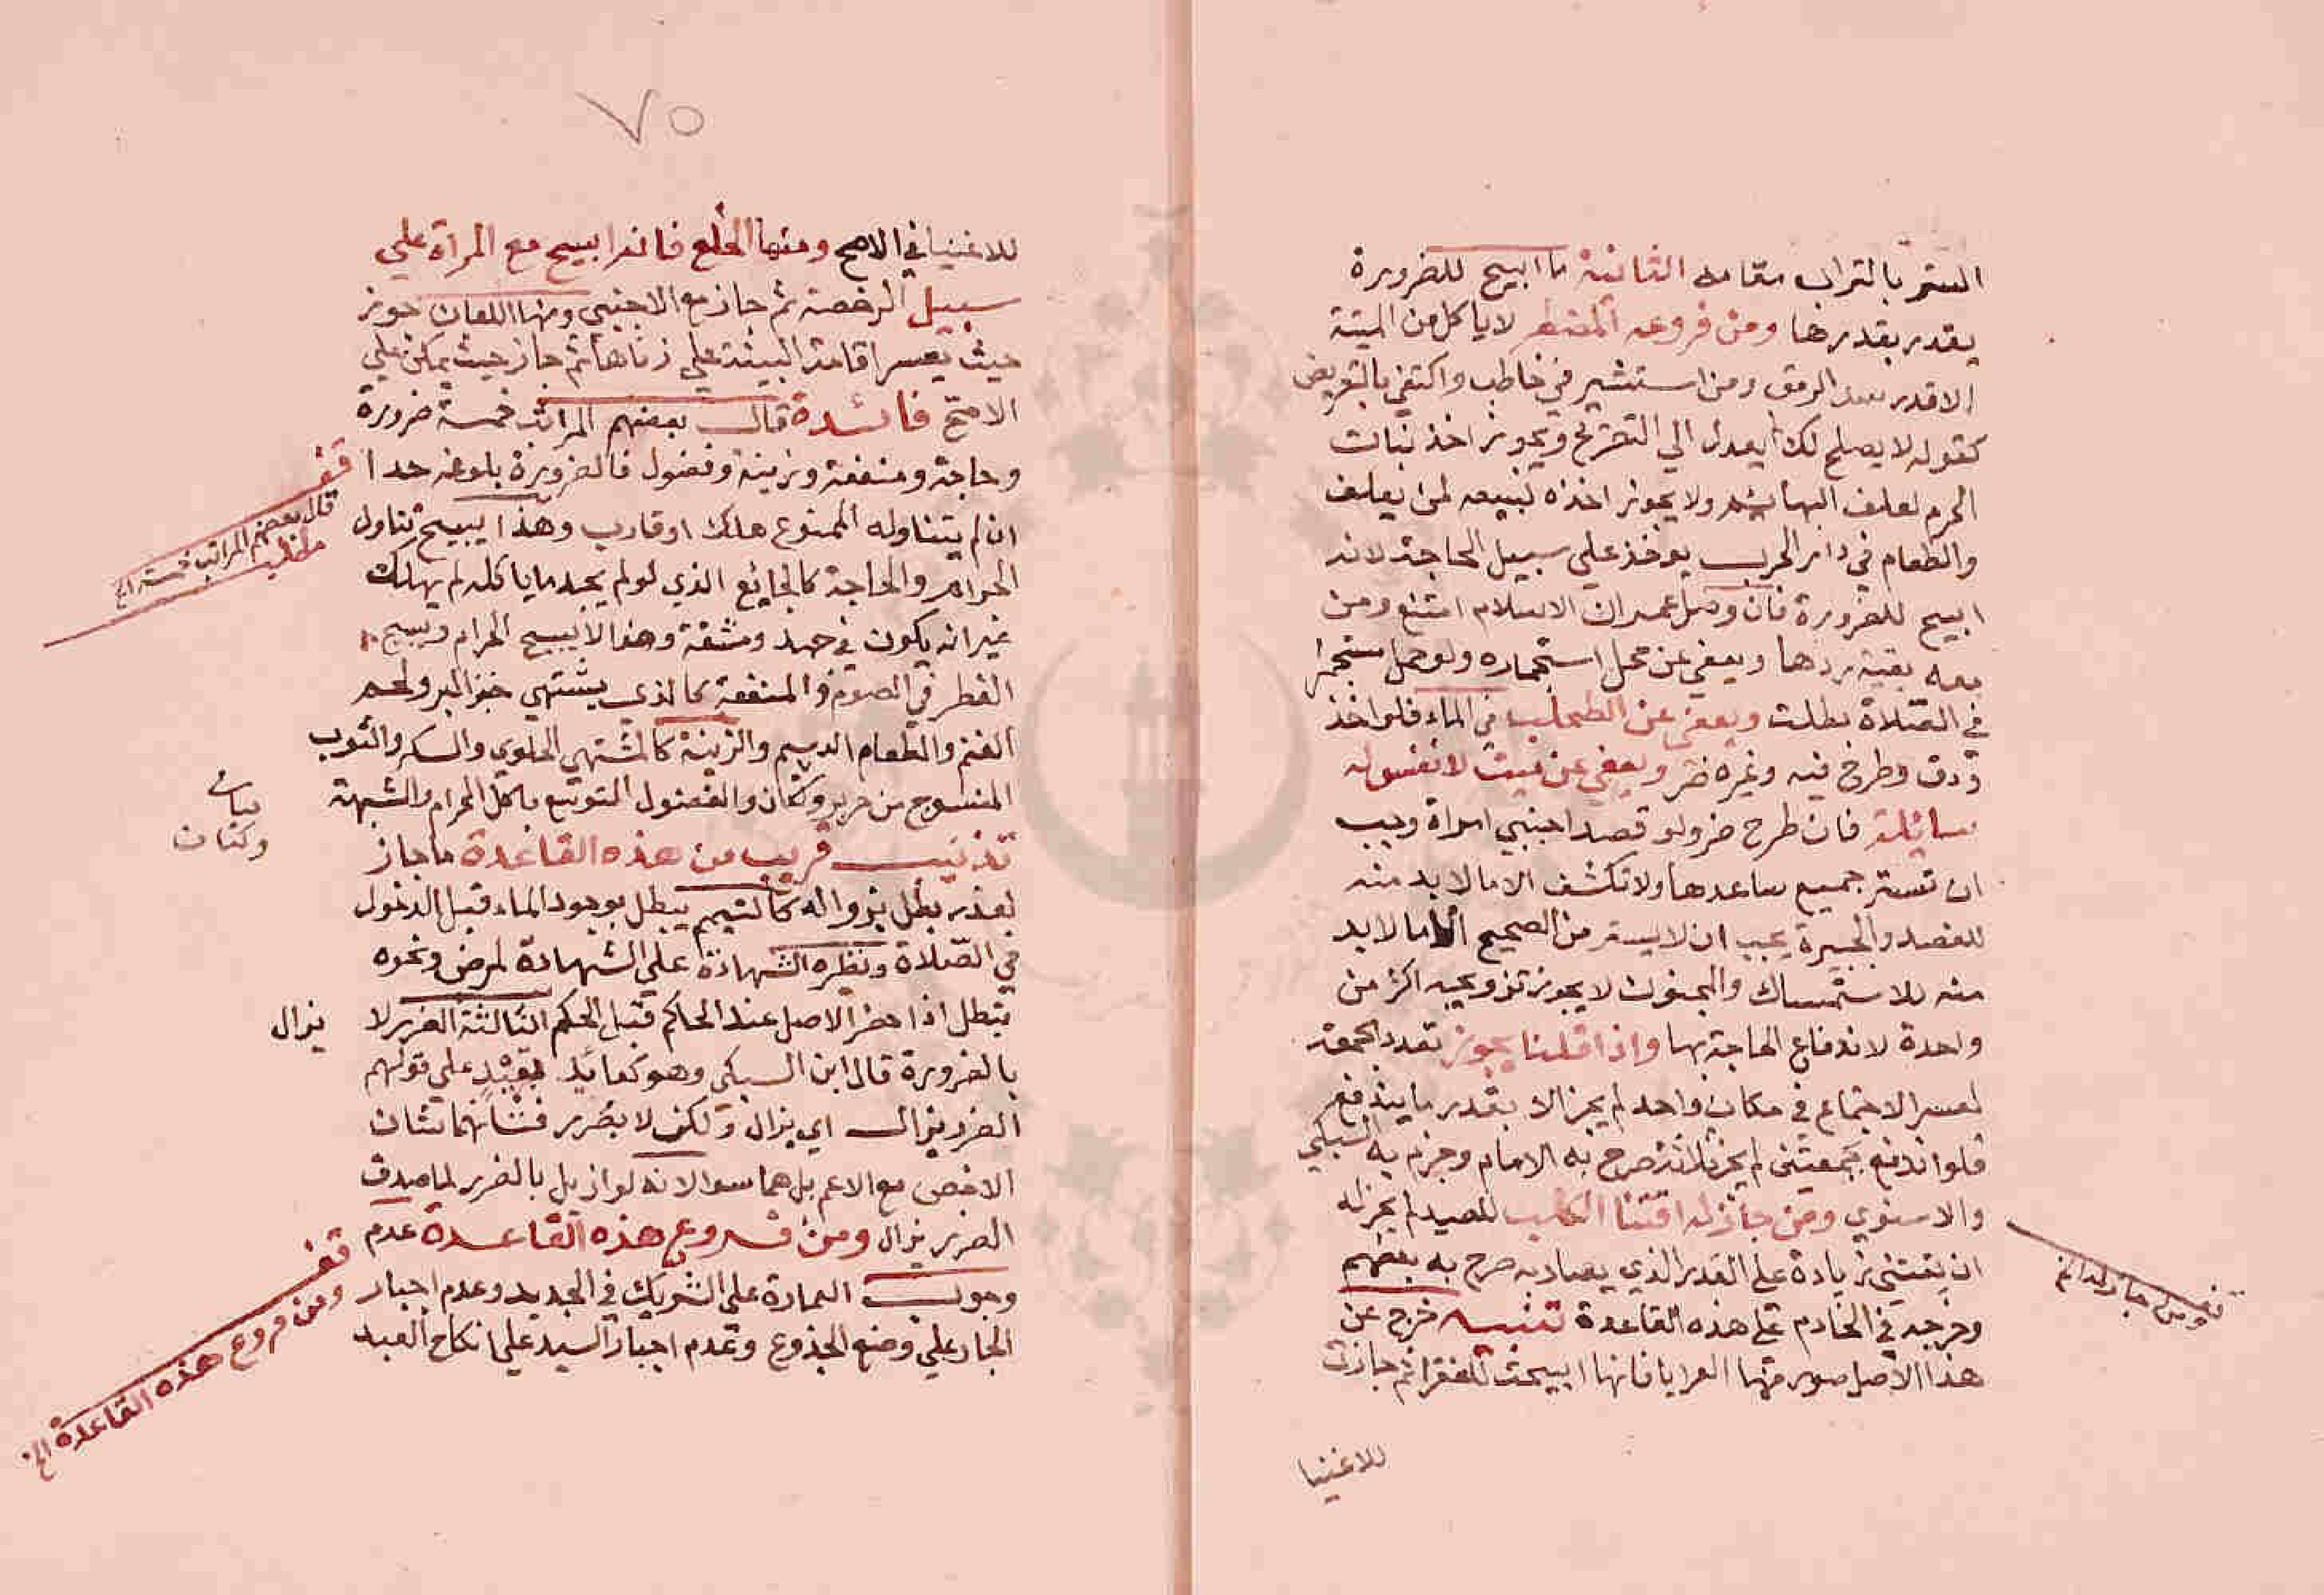 الستر بالتراب مقامه الثانية ما ابيح للضرورة
يقدر بقدرها ومن فروعه المضطر لا ياكل من الميتة
الا قدر سد الرمق ومن استشير في خاطب واكتفي بالتعريض
كقوله لا يصلح لك لم يعدل الي التصريح ويجوز اخذ نبات
الحرم لعلف البهائم ولا يجوز اخذه لبيعه لمن يعلف
والطعام في دار الحرب يوخذ علي سبيل الحاجة لانه
ابيح للضرورة فان وصل عمران الاسلام امتنع ومن
معه بقية ردها ويعفي عن محل استجماره ولو حمل مستجمرا
في الصلاة بطلت ويعفي عن الطحلب في الماء فلو اخذ
ودق وطرح فيه وغيره ضر ويعفي عن ميت لا نفس له
سائلة فان طرح ضر ولو فصد اجنبي امراة وجب
ان تستر جميع ساعدها ولا تكشف الا ما لا بد منه
للفصد والجبيرة يجب ان لا يستر من الصحيح الا ما لا بد
منه للاستمساك والمجنون لا يجوز تزويجه اكثر من
واحدة لاندفاع الحاجة بها واذا قلنا يجوز تعدد الجمعة
لعسر الاجتماع في مكان واحد لم يجز الا بقدر ما يندفع
فلو اندفع بجمعتين لم يجز ثلاثة صرح به الامام وجزم به السبكي
والاسنوي ومن جاز له اقتنا الكلب للصيد لم يجز له
ان يقتني زيادة علي القدر الذي يصاد به صرح به بعضهم
وخرجه في الخادم علي هذه القاعدة تنبيه خرج عن
هذا الاصل صور منها العرايا فانها ابيحت للفقرا ثم جازت
للاغنيا
قف ومن جاز له الخ
٧٥
للاغنيا في الاصح ومنها الخلع فانه ابيح مع المراة علي
سبيل الرخصة ثم جاز مع الاجنبي ومنها اللعان جوز
حيث تعسر اقامة البينة علي زناها ثم جاز حيث يمكن علي
الاصح فائدة قال بعضهم المراتب خمسة ضرورة
وحاجة ومنفعة وزينة وفضول فالضرورة بلوغه حدا
ان لم يتناوله الممنوع هلك او قارب وهذا يبيح تناول
الحرام والحاجة كالجايع الذي لو لم يجد ما ياكله لم يهلك
غير انه يكون في جهد ومشقة وهذا لا يبيح الحرام ويبيح
الفطر في الصوم والمنفعة كالذي يشتهي خبز البر ولحم
الغنم والطعام الدسم والزينة كالمشتهي الحلوي والسكر والثوب
المنسوج من حرير وكتان والفضول التوسع باكل الحرام والشبهة
تذنيب قريب من هذه القاعدة ما جاز
لعذر بطل بزواله كالتيمم يبطل بوجود الماء قبل الدخول
في الصلاة ونظيره الشهادة علي الشهادة لمرض ونحوه
تبطل اذا حضر الاصل عند الحاكم قبل الحكم الثالثة الضرر لا يزال
بالضرورة قال ابن السبكي وهو كعائد يقيد علي قولهم
الضرر يزال اي يزال ولكن لا بضرر فشانهما شان
الاخص مع الاعم بل هما سوا لانه لو ازيل بالضرر لما صدق
الضرر يزال ومن فروع هذه القاعدة عدم
وجوب العمارة علي الشريك في الجديد وعدم اجبار
الجار علي وضع الجذوع وعدم اجبار السيد علي انكاح العبد
قف
قال بعضهم المراتب خمسة الخ
مطلب
وكتان
قف
ومن فروع هذه القاعدة الخ